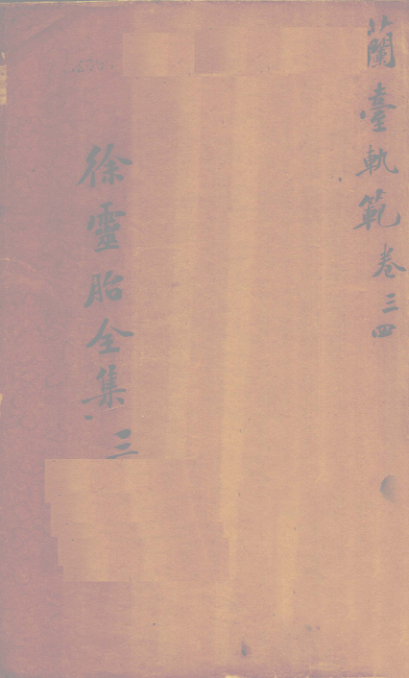 蘭臺軌範卷三四
徐靈胎全集三